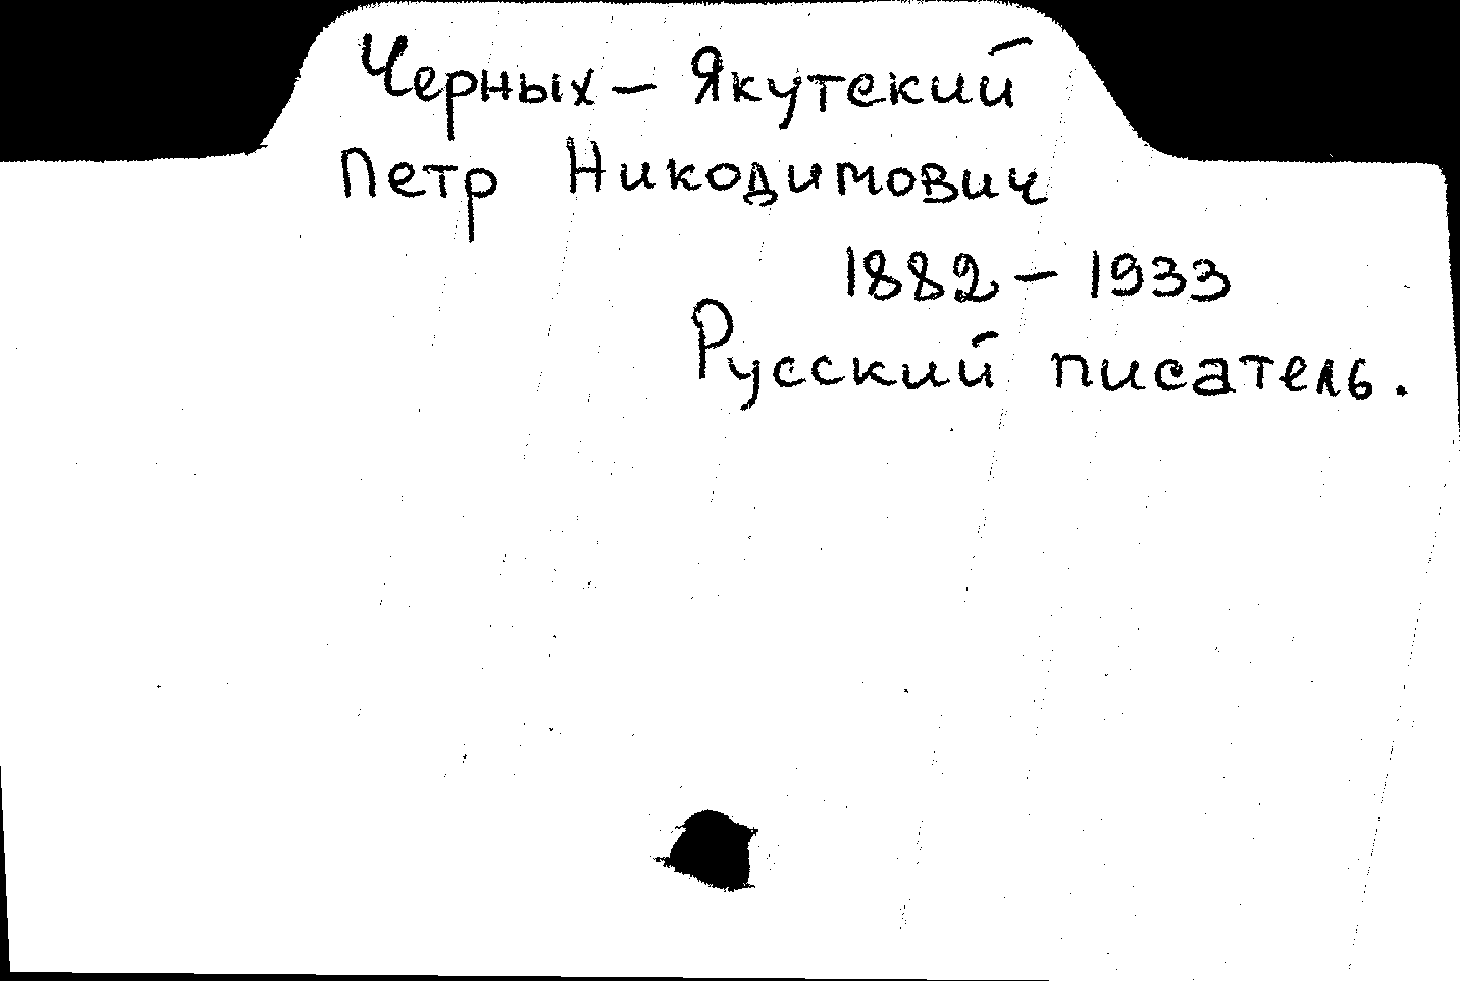 Черных – Якутский
Петр Никодимович
1882 – 1933
Русский писатель.